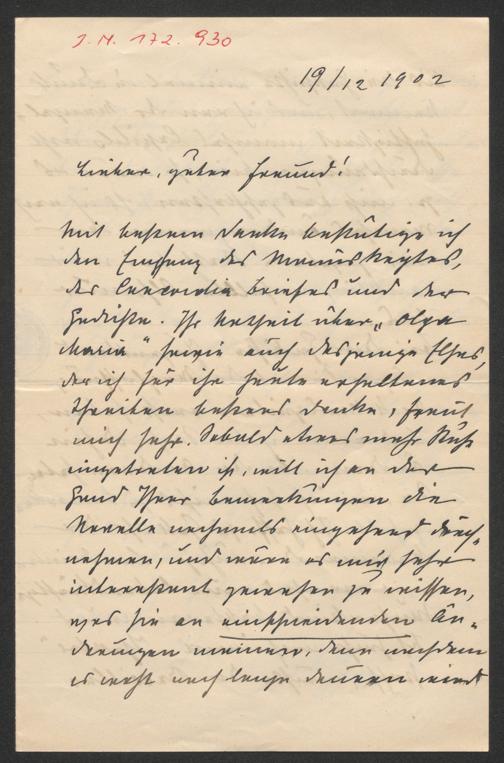 J.N. 172.930
19/12 1902
Lieber, guter Freund!
Mit bestem Danke bestätige ich
den Empfang des Manuskriptes,
des Concordia Briefes und der
Gedichte. Ihr Urtheil über „Olga
Maria" sowie auch dasjenige Elsas,
der ich für ihr heute erhaltenes
Schreiben bestens danke, freut
mich sehr. Sobald etwas mehr Ruhe
eingetreten ist, will ich an der
Hand Ihrer Bemerkungen die
Novelle nochmals eingehend durch-
nehmen, und wäre es mir sehr
interessant gewesen zu wissen,
was Sie an einschneidenden Än-
derungen meinen, denn nachdem
es wohl noch lange dauern wird